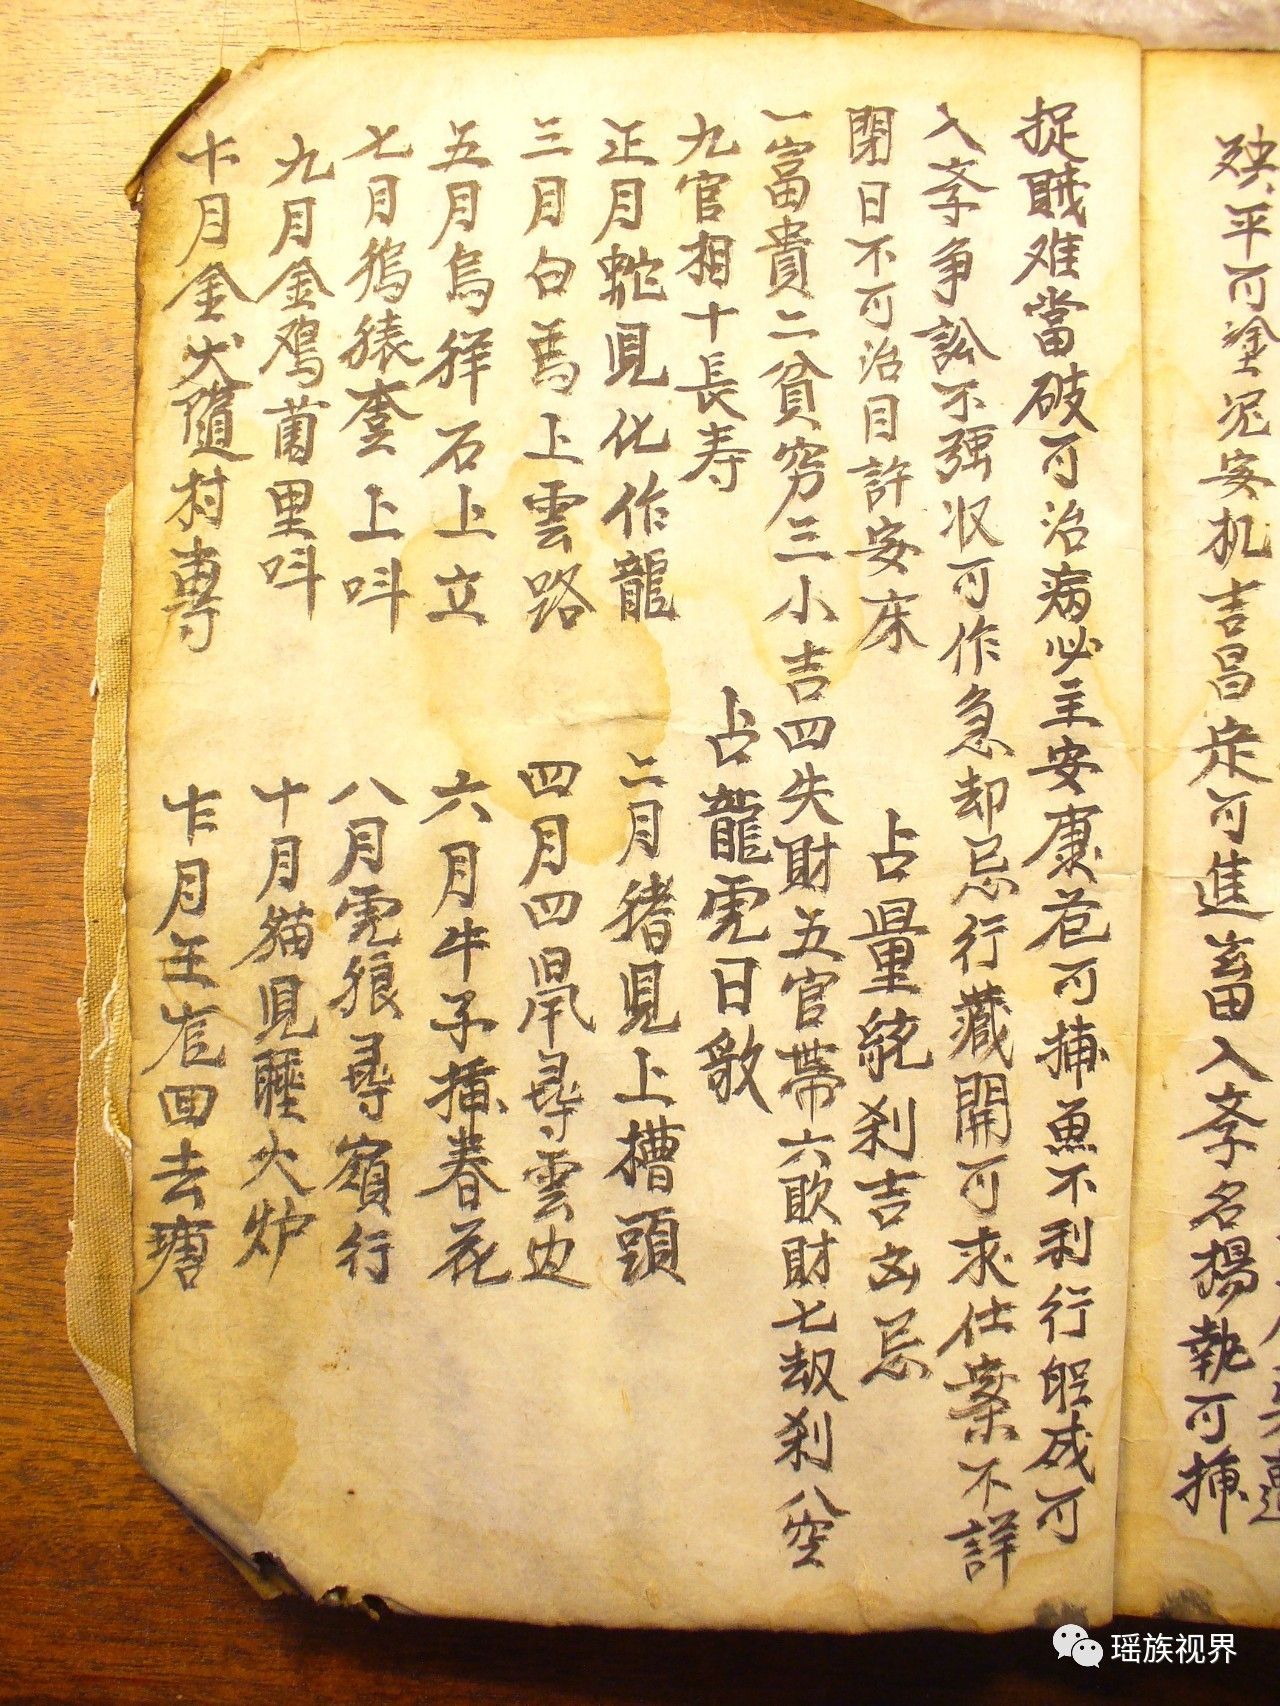 殃平可塗泥安机吉昌定可進畜入孛名揚執可捕
捉賊难當破可治病必主安康危可捕魚不利行船成可
入孛爭訟不强收可作急却忌行藏開可求仕案不詳
閉日不可治目許安床 占量統刹吉凶忌
一富貴二貧穷三小吉四失財五官帶六歐財七劫刹八空
九官相十長寿 占龍虎日歌
正月蛇見化作龍 二月猪見上槽頭
三月白馬上雲路 四月四鼠尋雲边
五月烏羊石上立 六月牛子插春花
七月猿臺上叫 八月虎狼尋嶺行
九月金鸡園里叫 十月貓見睡火炉
十月金犬隨村專 月回去塘
瑶族视界